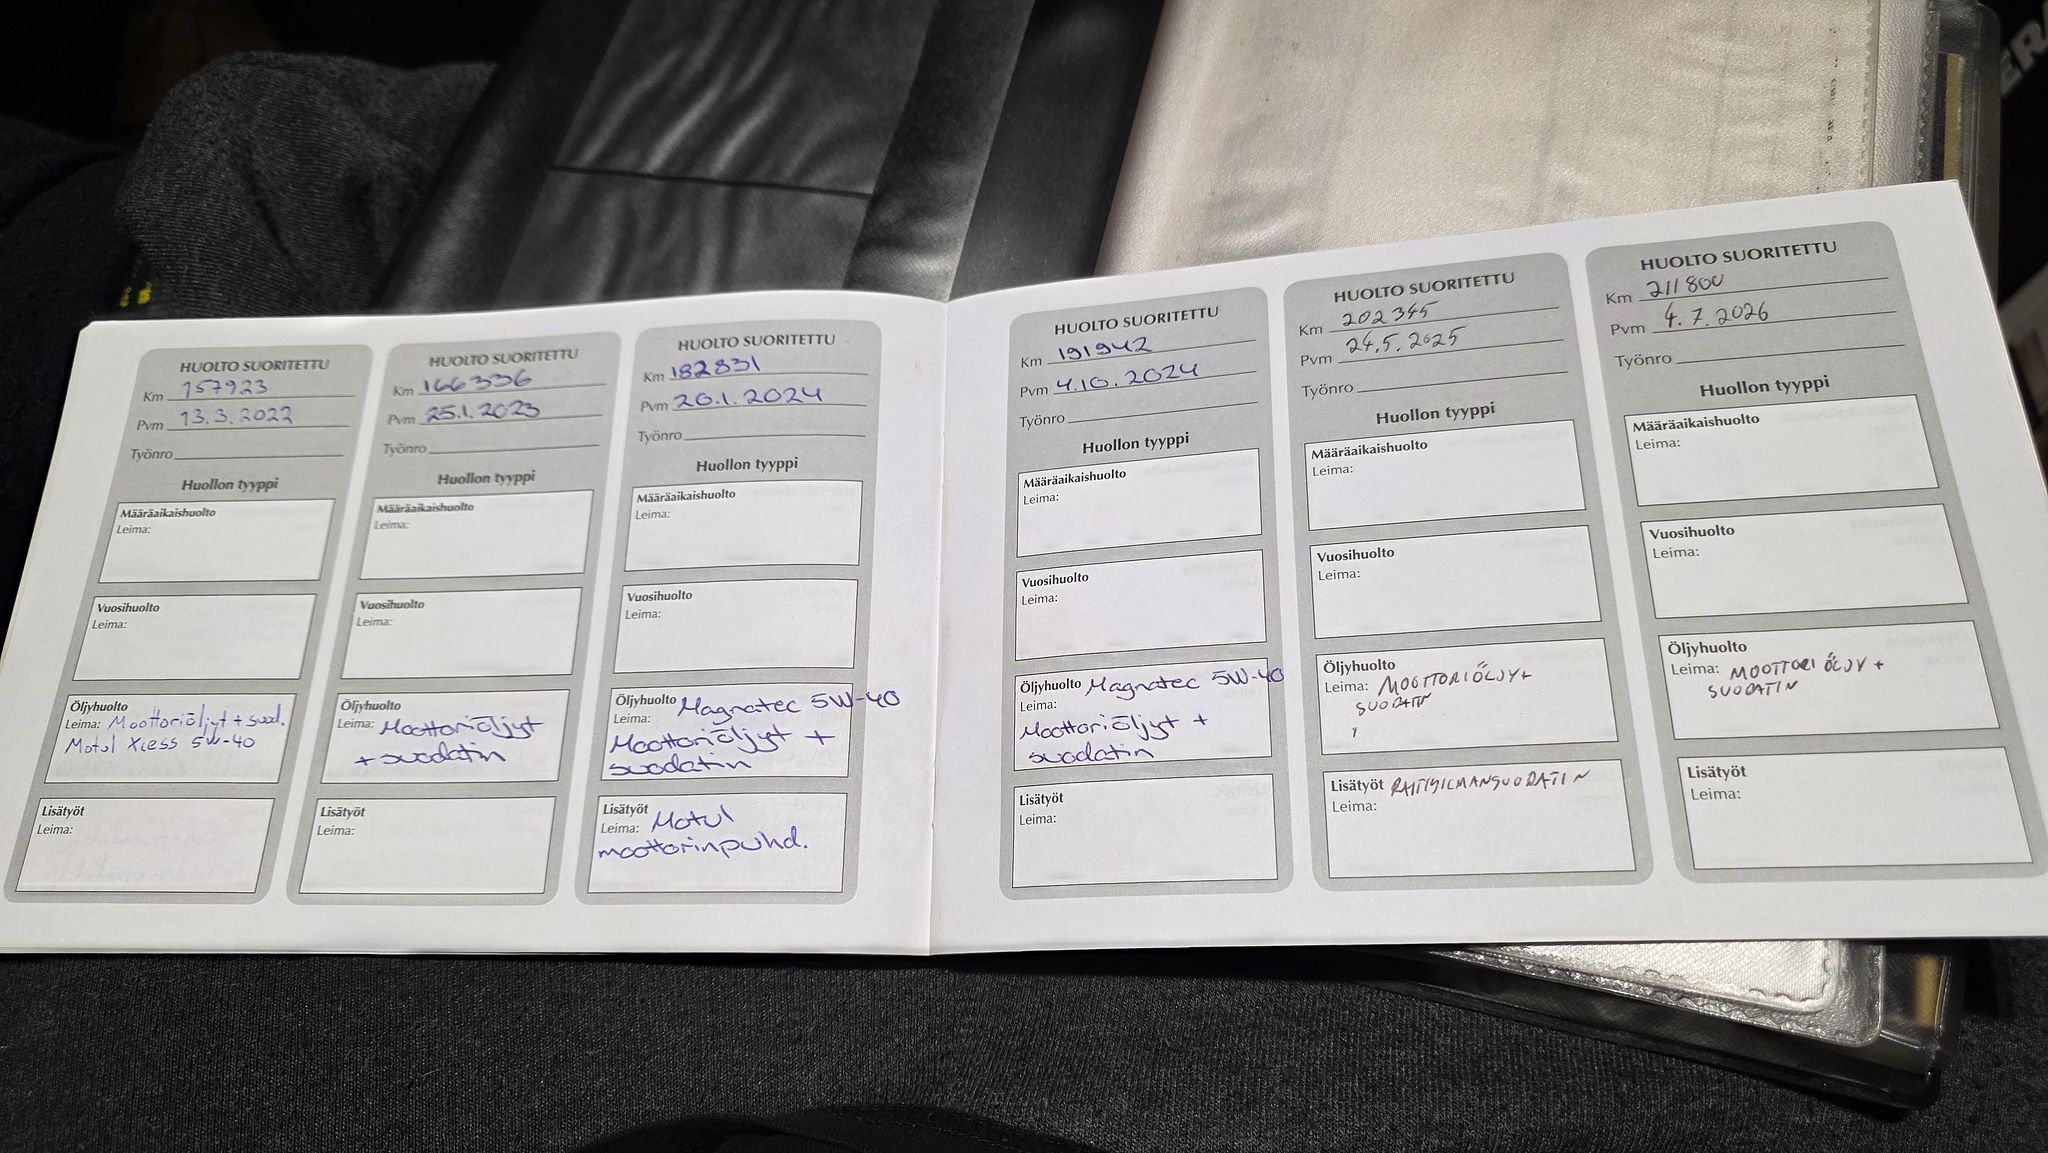 HUOLTO SUORITETTU
Km 157923
Pvm 13.3.2022
Työnro
Huollon tyyppi
Määräaikaishuolto
Leima:
Vuosihuolto
Leima:
Öljyhuolto
Leima: Moottoriöljyt + suod.
Motul Xcess 5W-40
Lisätyöt
Leima:
HUOLTO SUORITETTU
Km 166336
Pvm 25.1.2023
Työnro
Huollon tyyppi
Määräaikaishuolto
Leima:
Vuosihuolto
Leima:
Öljyhuolto
Leima: Moottoriöljyt
+ suodatin
Lisätyöt
Leima:
HUOLTO SUORITETTU
Km 182831
Pvm 20.1.2024
Työnro
Huollon tyyppi
Määräaikaishuolto
Leima:
Vuosihuolto
Leima:
Öljyhuolto Magnatec 5W-40
Leima:
Moottoriöljyt +
suodatin
Lisätyöt
Leima: Motul
moottorinpuhd.
HUOLTO SUORITETTU
Km 191942
Pvm 4.10.2024
Työnro
Huollon tyyppi
Määräaikaishuolto
Leima:
Vuosihuolto
Leima:
Öljyhuolto Magnatec 5W-40
Leima:
Moottoriöljyt +
suodatin
Lisätyöt
Leima:
HUOLTO SUORITETTU
Km 202345
Pvm 24.5.2025
Työnro
Huollon tyyppi
Määräaikaishuolto
Leima:
Vuosihuolto
Leima:
Öljyhuolto
Leima: MOOTTORIÖLJY+
SUODATIN
Lisätyöt RAITISILMANSUODATIN
Leima:
HUOLTO SUORITETTU
Km 211800
Pvm 4.7.2026
Työnro
Huollon tyyppi
Määräaikaishuolto
Leima:
Vuosihuolto
Leima:
Öljyhuolto
Leima: MOOTTORI ÖLJY +
SUODATIN
Lisätyöt
Leima: